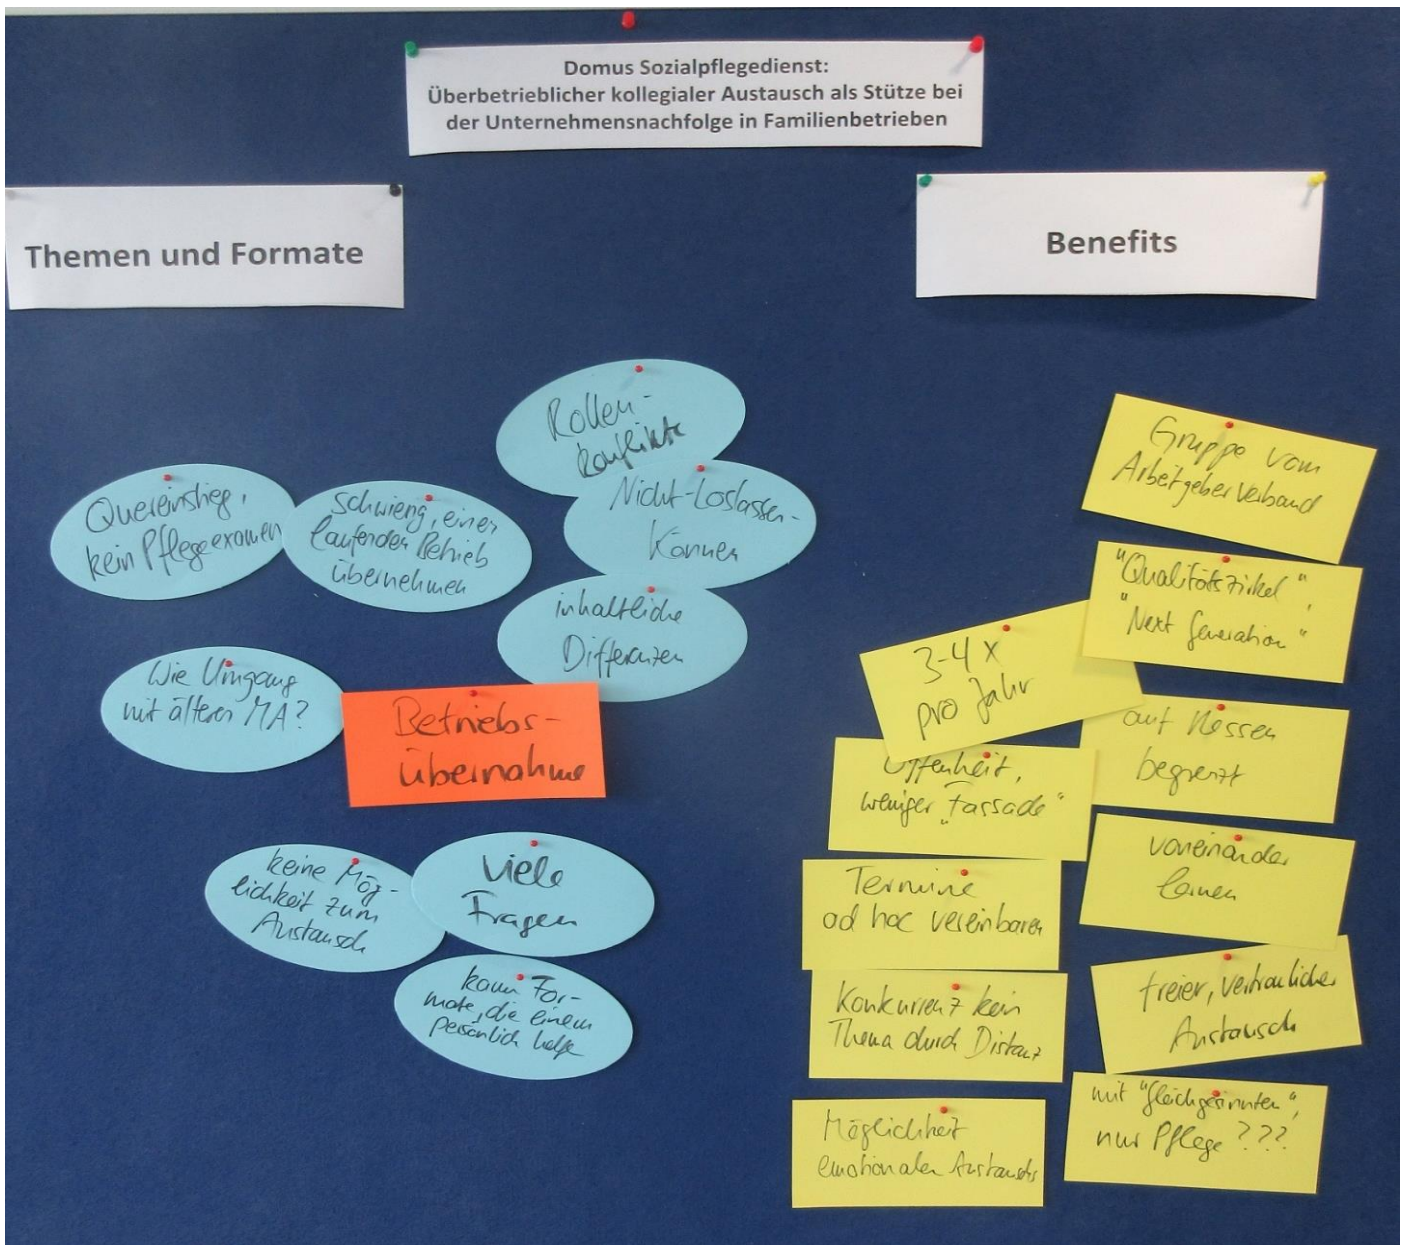 Domus Sozialpflegedienst:
Überbetrieblicher kollegialer Austausch als Stütze bei
der Unternehmensnachfolge in Familienbetrieben
Themen und Formate
Benefits
Rollen-
konflikte
Nicht-Loslassen-
Können
inhaltliche
Differenzen
Quereinstieg,
kein Pflegeexamen
schwierig, einen
laufenden Betrieb
übernehmen
Wie Umgang
mit älteren MA?
Betriebs-
übernahme
keine Mög-
lichkeit zum
Austausch
viele
Fragen
kaum For-
mate, die einem
persönlich helfen
Gruppe vom
Arbeitgeberverband
"Qualitätszirkel",
"Next Generation"
3-4 x
pro Jahr
auf Hessen
begrenzt
Offenheit,
weniger „Fassade“
voneinander
lernen
Termine
ad hoc vereinbaren
freier, vertraulicher
Austausch
Konkurrenz kein
Thema durch Distanz
mit "Gleichgesinnten",
nur Pflege???
Möglichkeit
emotionalen Austauschs